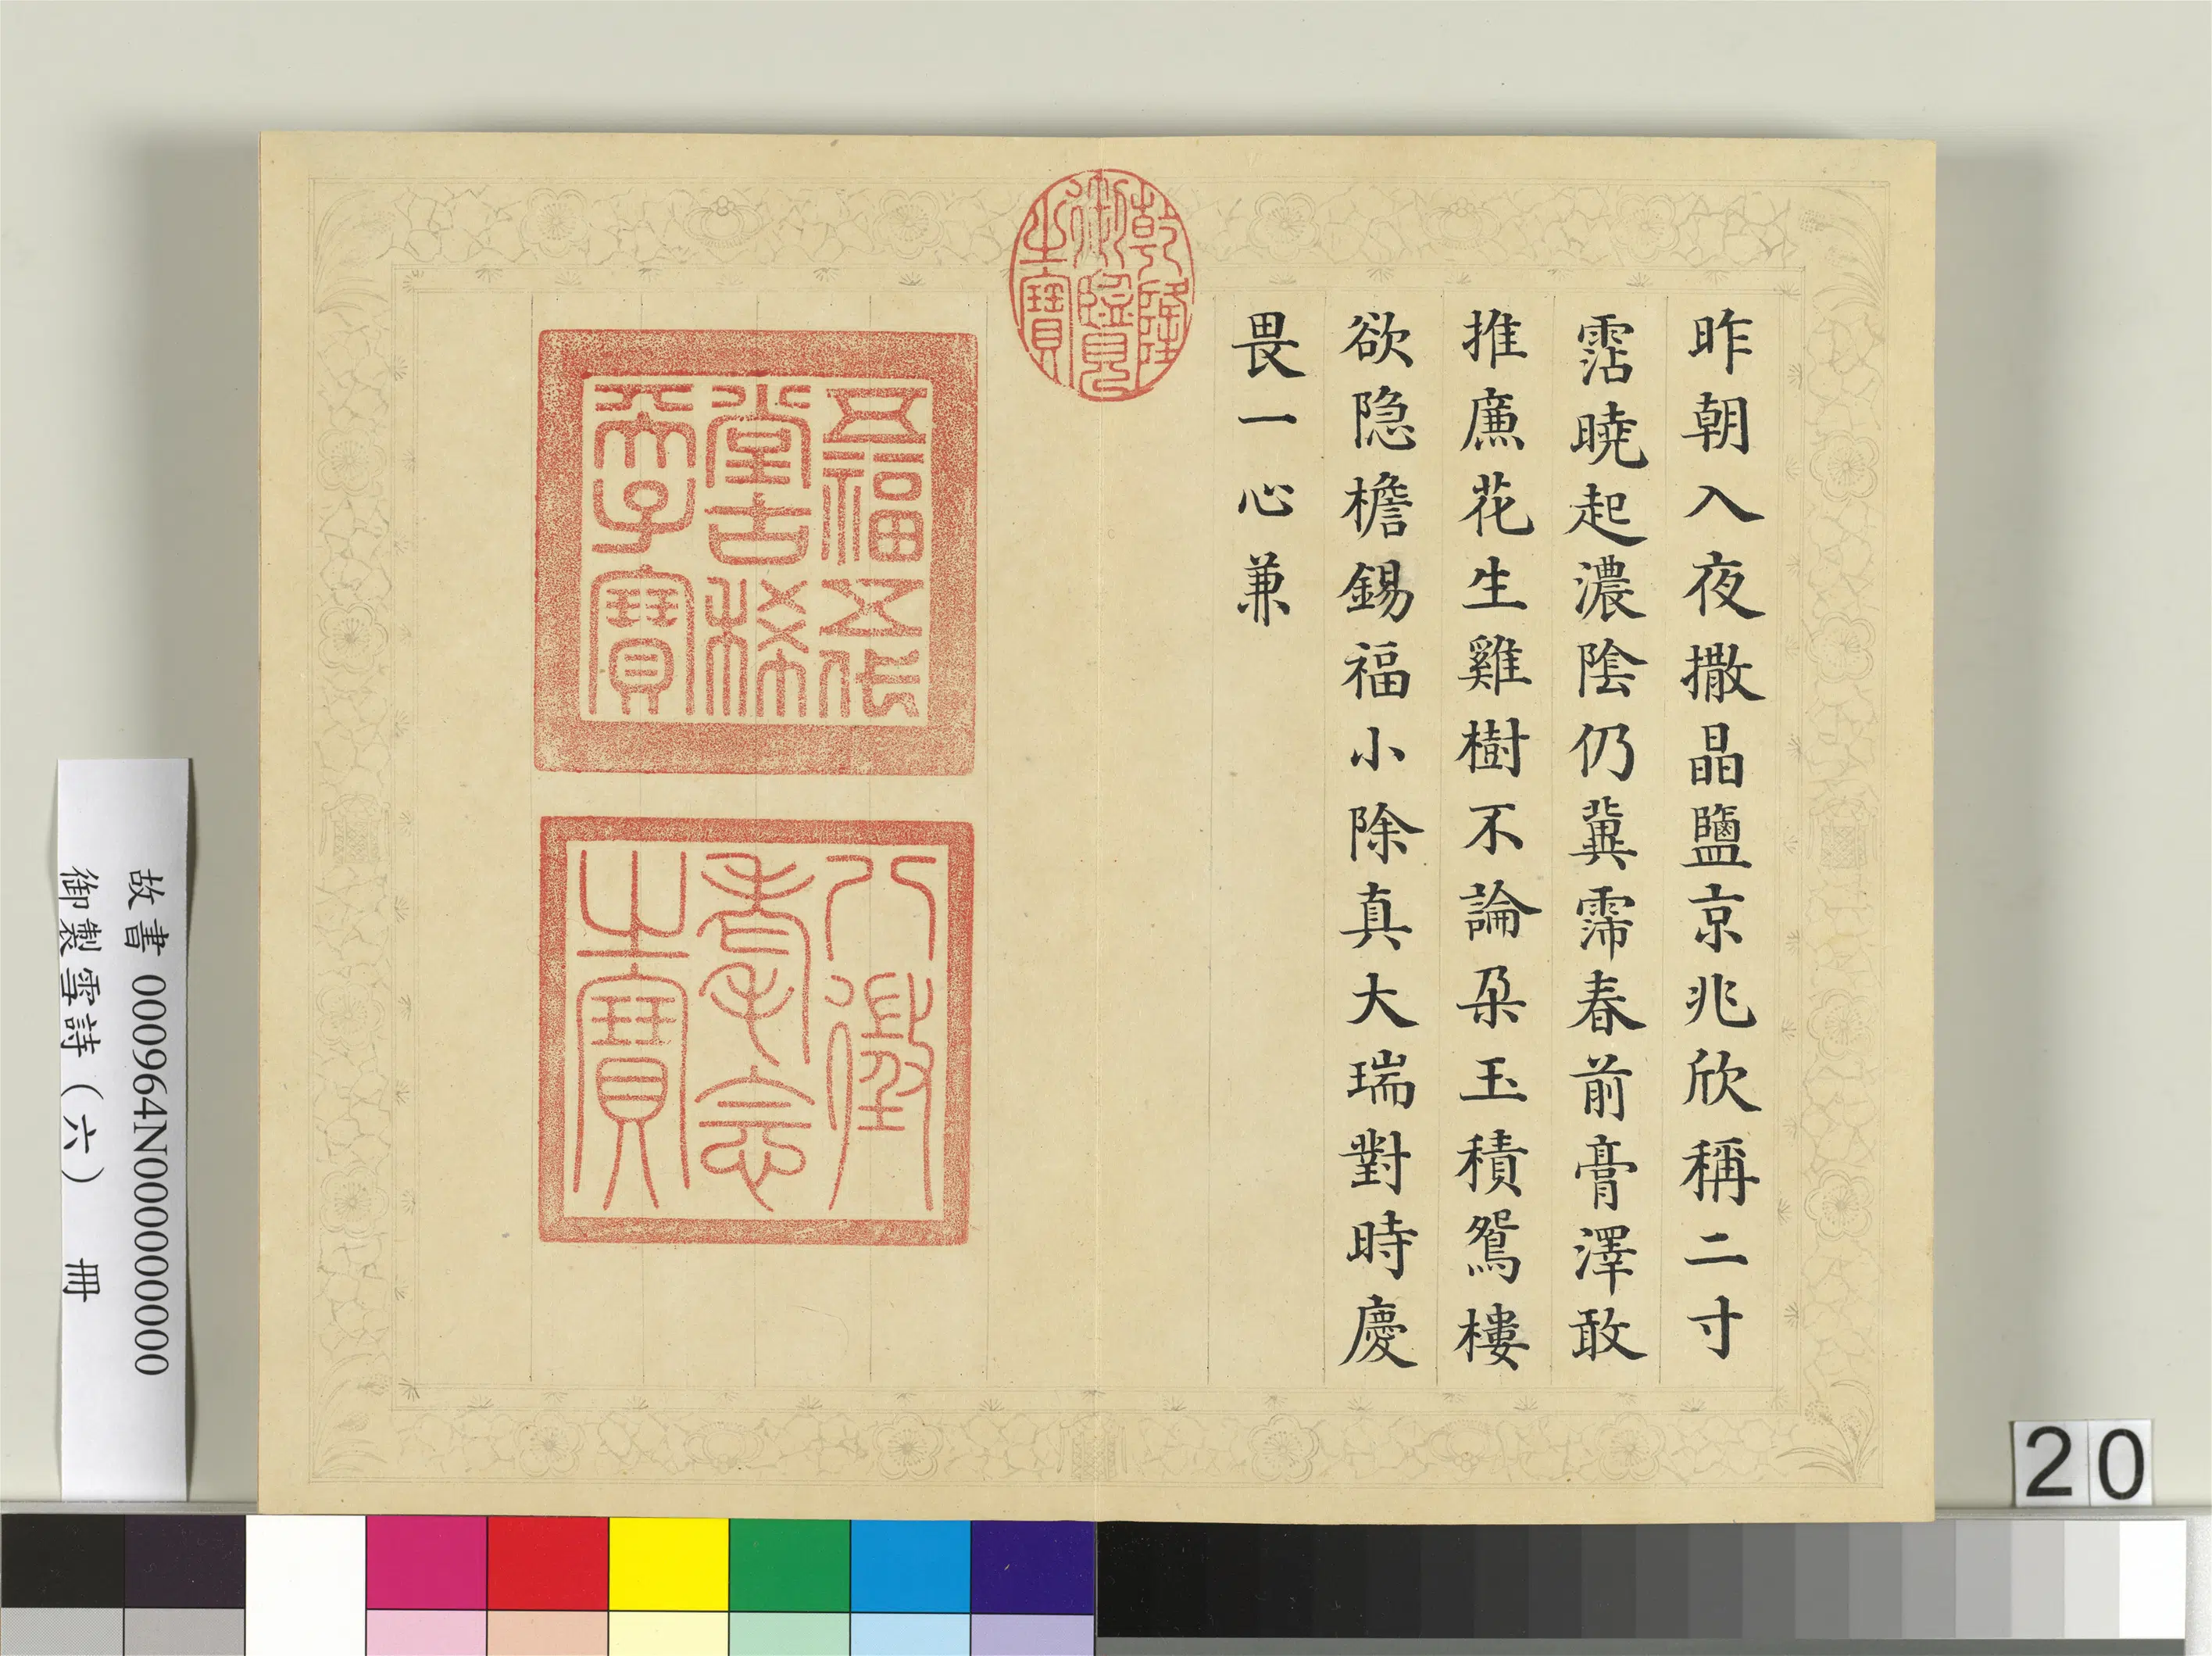 昨朝入夜撒晶鹽京兆欣稱二寸
霑曉起濃陰仍冀霈春前膏澤敢
推廉花生雞樹不論朶玉積鴛樓
欲隐檐錫福小除真大瑞對時慶
畏一心兼
乾隆
御覽
之寶
五福五代
堂古稀
天子寶
八徵
耄念
之寶
故書 000964N000000000
御製雪詩（六） 冊
20